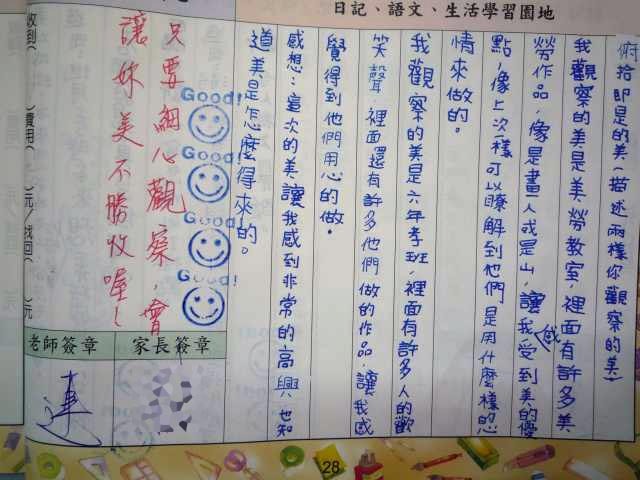 日記、語文、生活學習園地
俯拾即是的美(描述兩樣你觀察的美)
我觀察的美是美勞教室,裡面有許多美
勞作品,像是畫人或是山,讓我感受到美的優
點,像上次一樣可以瞭解到他們是用什麼樣的心
情來做的。
我觀察的美是六年孝班,裡面有許多人的歡
笑聲,裡面還有許多他們做的作品,讓我感
覺得到他們用心的做。
感想:這次的美讓我感到非常的高興也知
道美是怎麼得來的。
Good!
Good!
Good!
Good!
只要細心觀察,會
讓妳美不勝收喔!
收到( )費用( )元/找回( )元
家長簽章
老師簽章
28